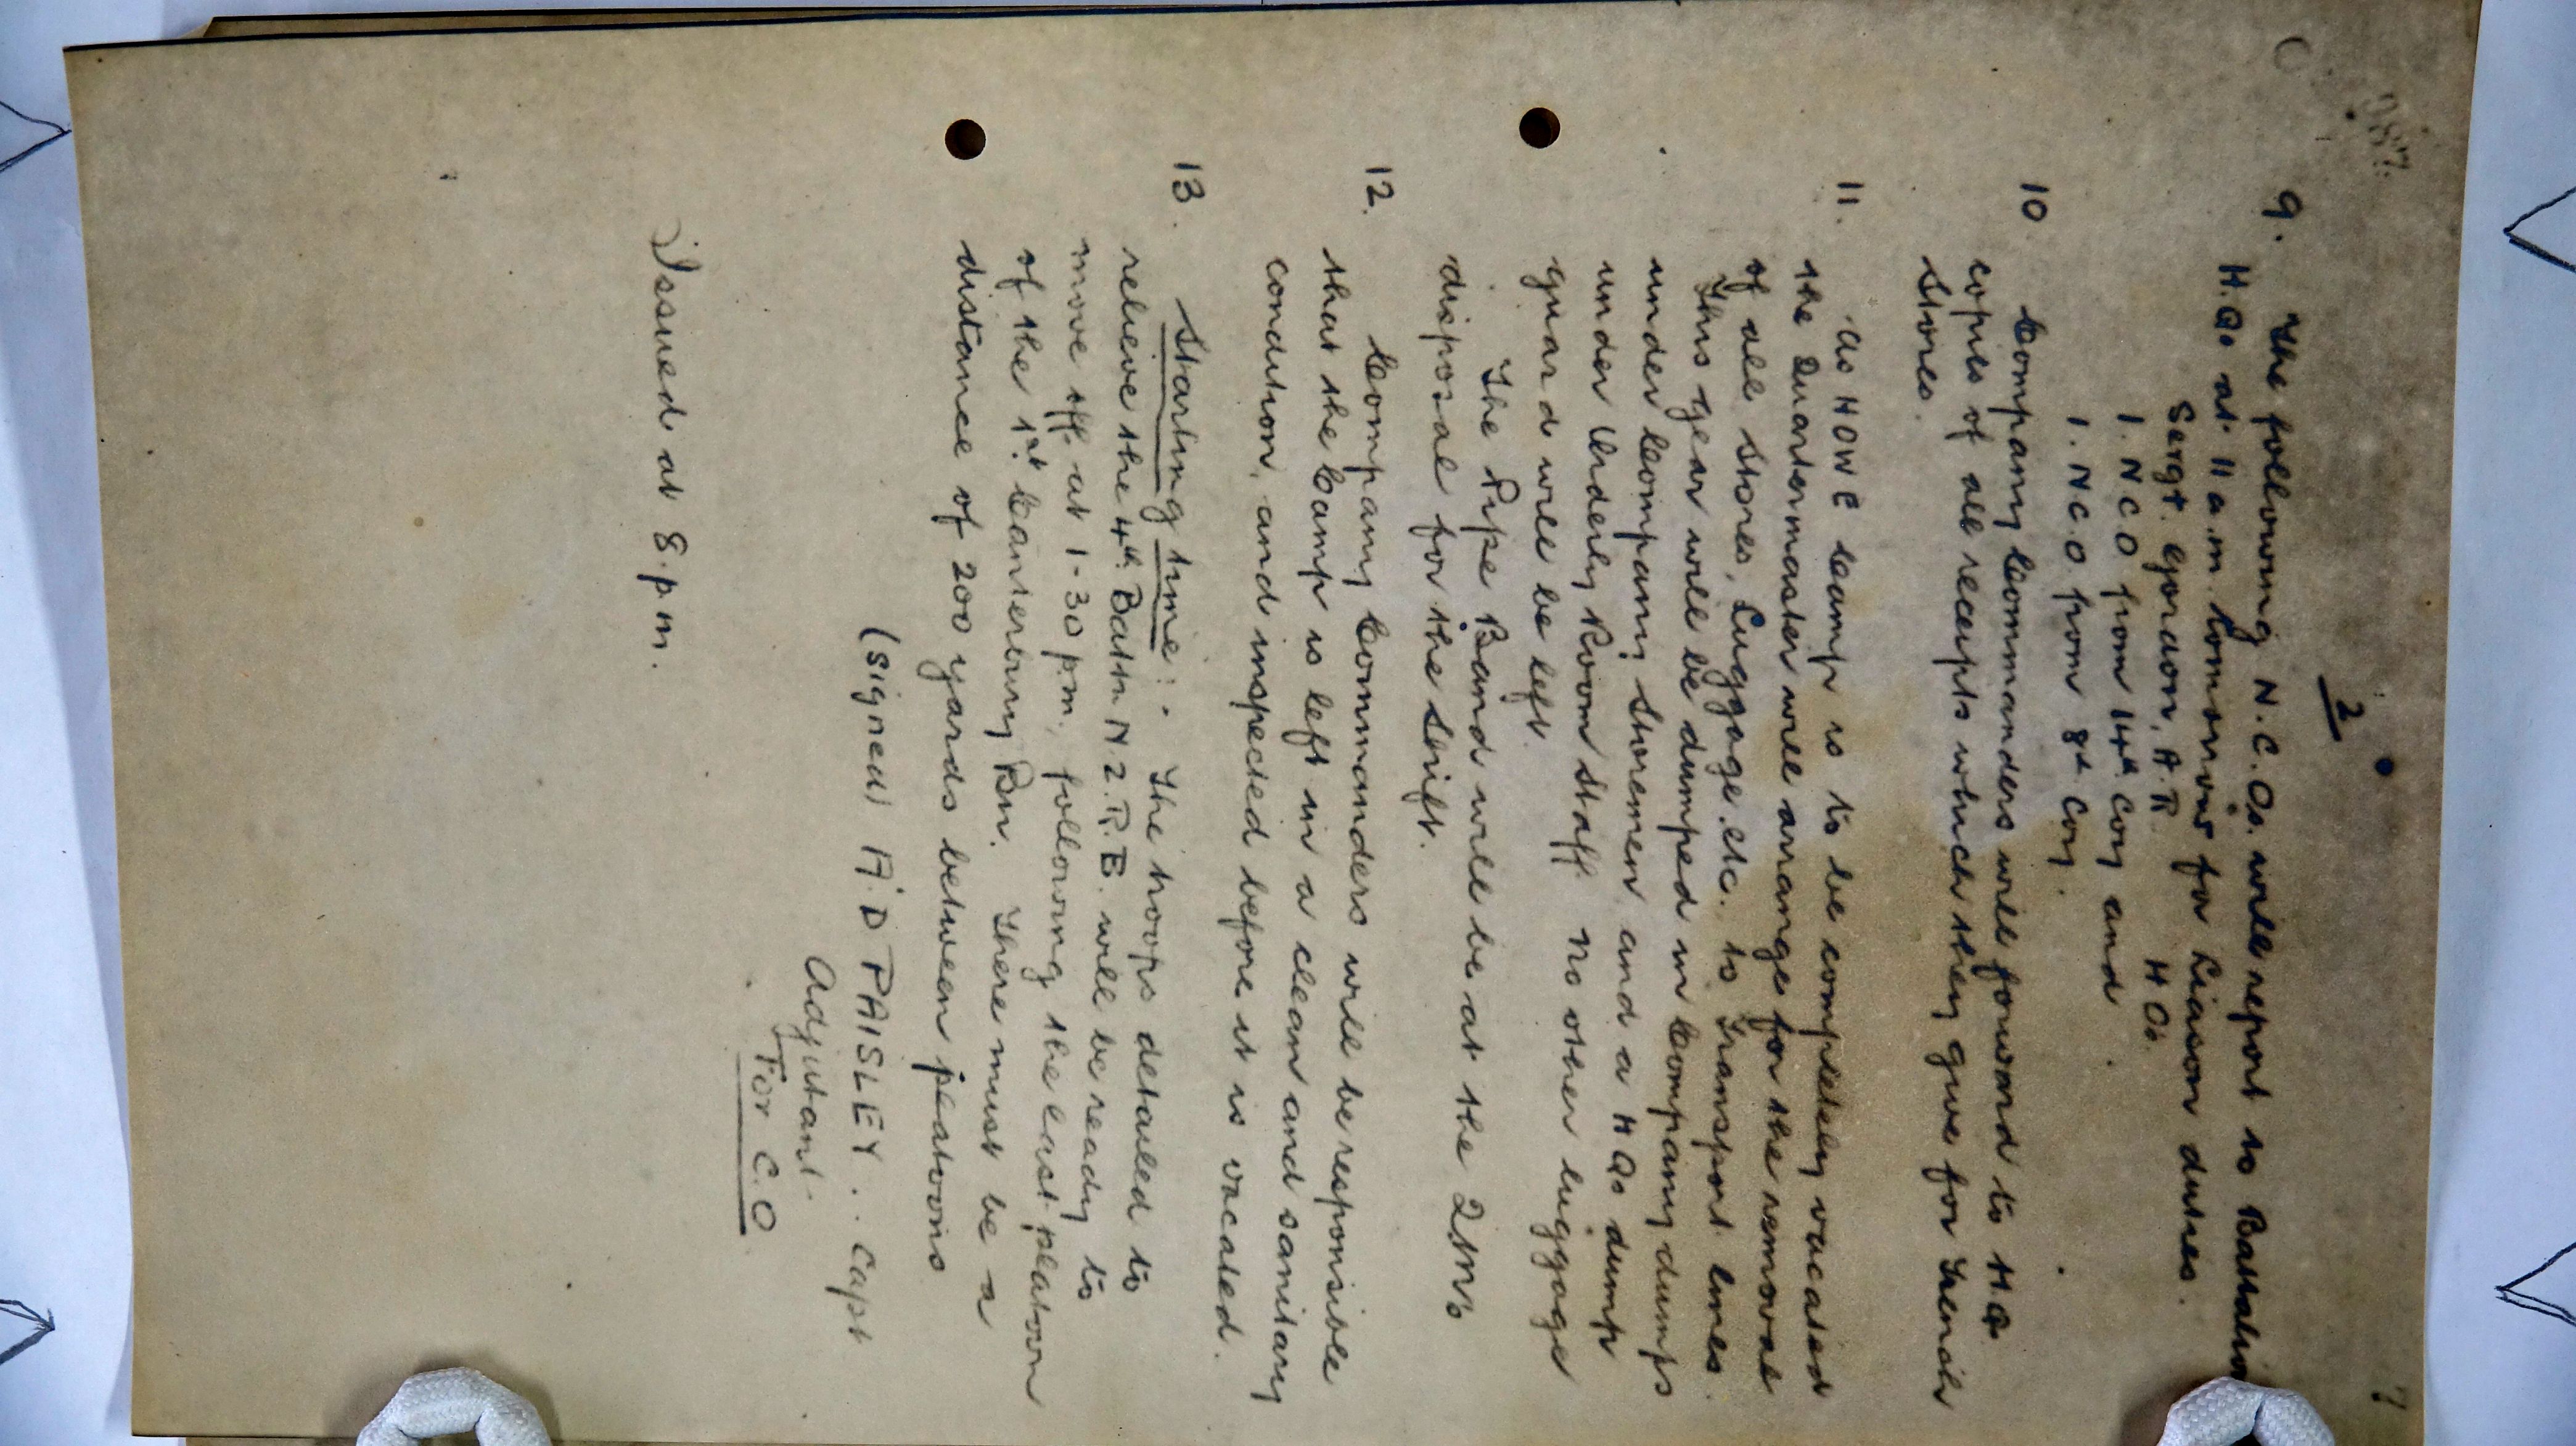 2
9. The following N.C.Os. will report to Battalion
H.Qs at 11 a.m. tomorrow for Liason duties.
Sergt. Gordon, A.R. HQs.
1. NCO from 14th Coy and
1. NCO from 8th Coy.
10. Company Commanders will forward to H.Q
copies of all receipts which they give for Trench
Stores.
11. As HOWE Camp is to be completely vacated
the Quartermaster will arrange for the removal
of all stores, Luggage etc. to Transport lines.
This gear will be dumped in Company dumps
under Company Storemen and a HQs dump
under Orderly Room Staff. No other luggage
guard will be left.
The Pipe Band will be at the 2MRs
disposal for the shift.
12. Company Commanders will be responsible
that the Camp is left in a clean and sanitary
condition, and inspected before it is vacated.
13. Starting time:- The troops detailed to
relieve the 4th Battn N.Z.R.B. will be ready to
move off at 1-30 p.m. following the last platoon
of the 1st Canterbury Bn. There must be a
distance of 200 yards between platoons
(signed) A.D PAISLEY.. Capt
Adjutant.
For C.O
Issued at 8.p.m.